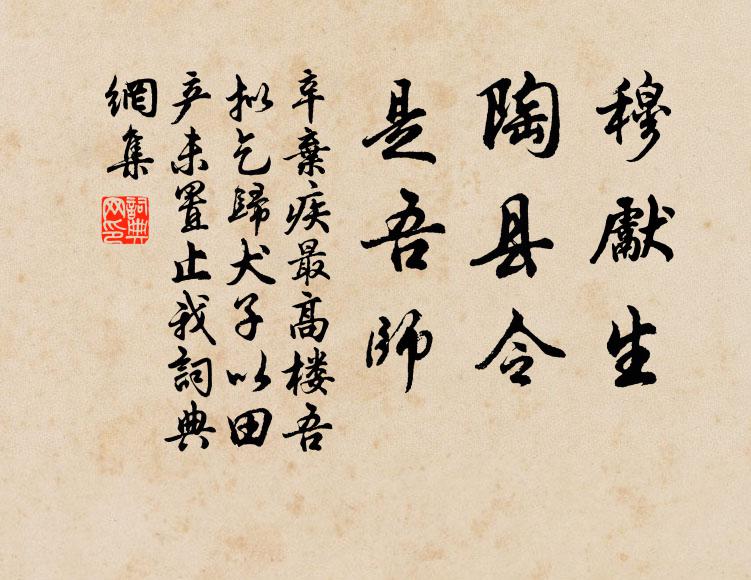 穆獻生
陶县令
是吾師
辛棄疾最高楼吾
拟乞歸犬子以田
产未置止我詞典
網集
詞典
网印